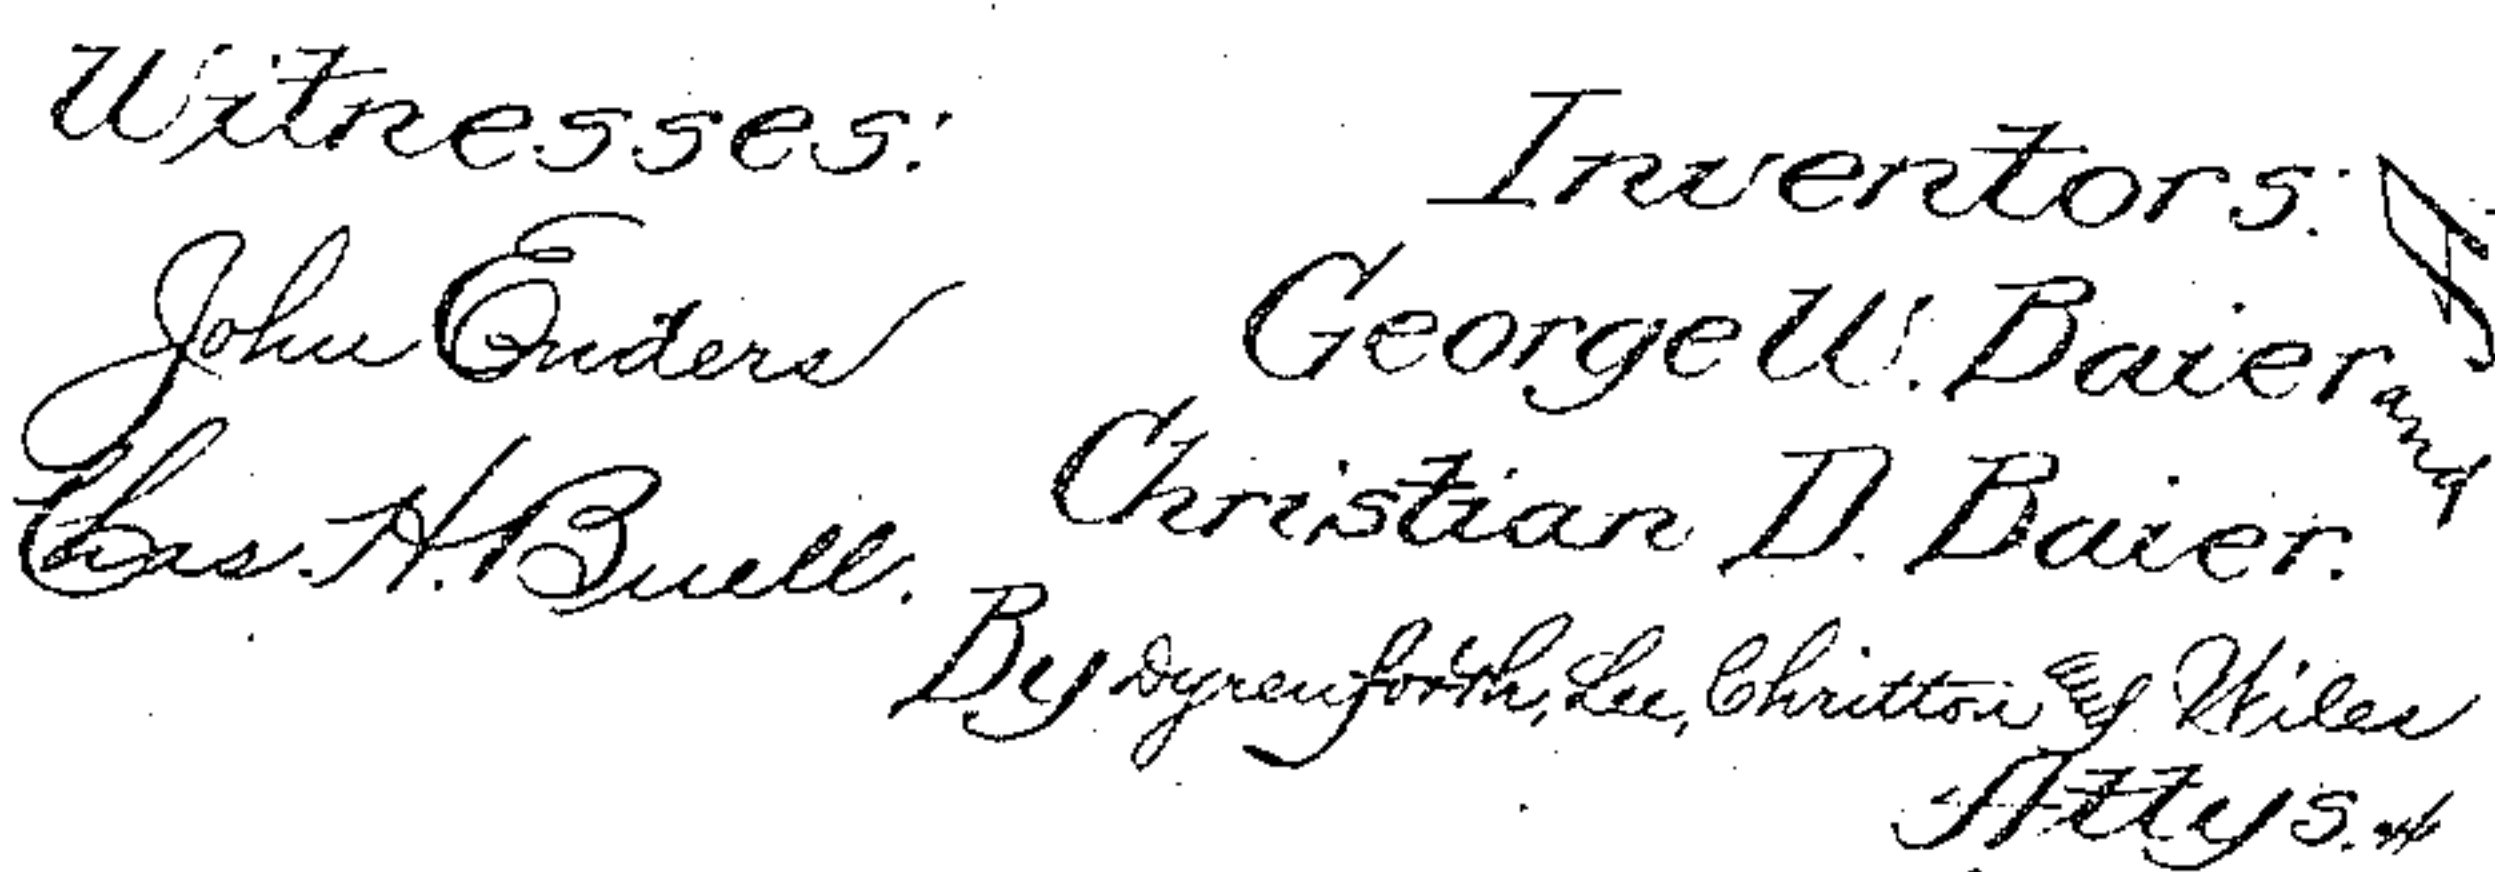 Witnesses:
John Enders
Chas. H. Buell.
Inventors:
George W. Baier and
Christian D. Baier.
By Dyrenforth, Lee, Chritton and Wiles
Attys.